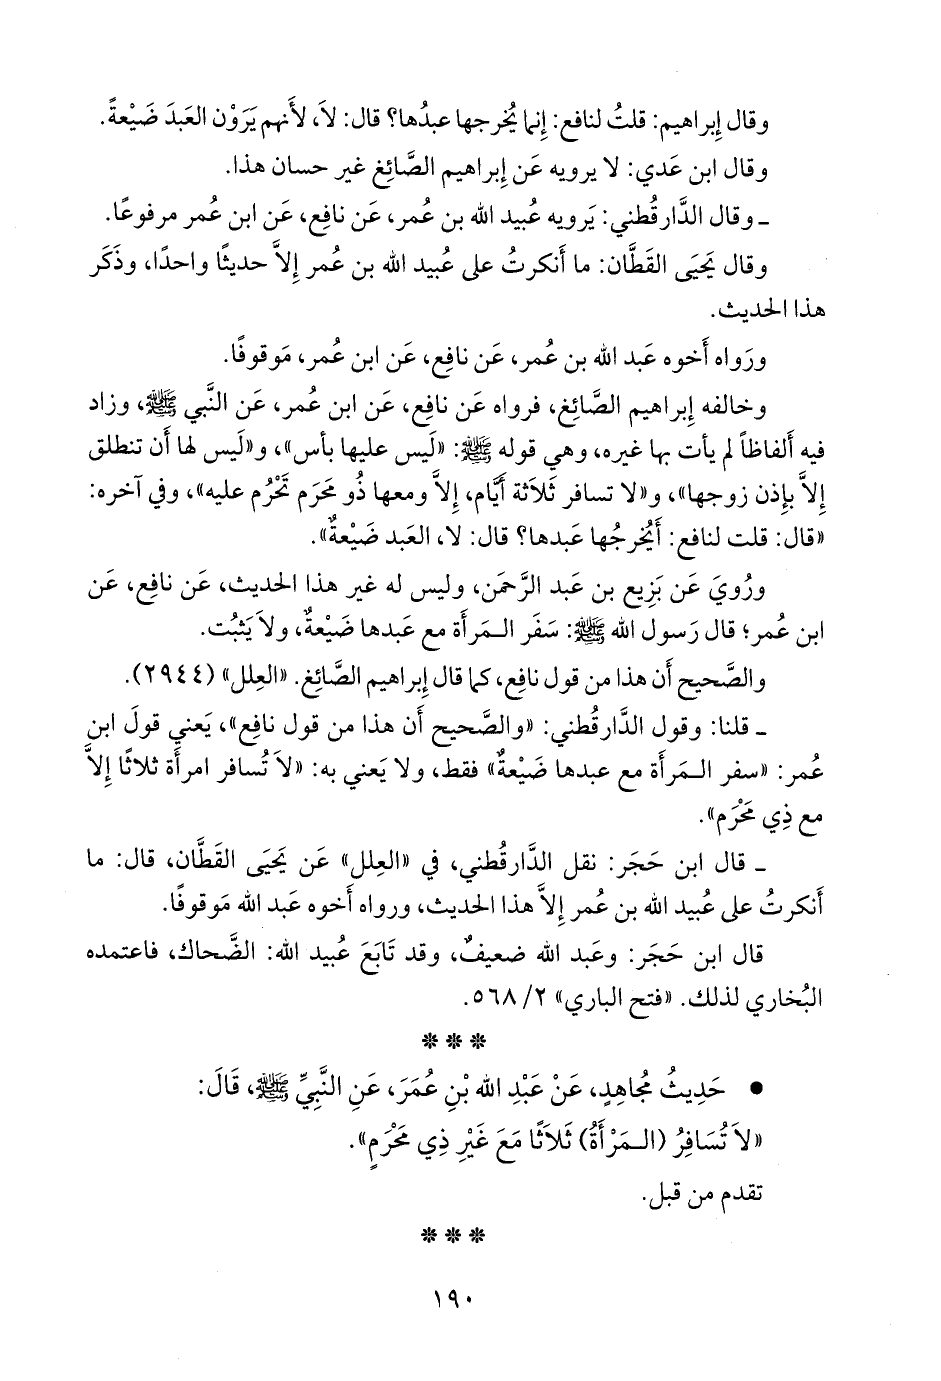 وقال إبراهيم: قلتُ لنافع: إنما يُخرجها عبدُها؟ قال: لاَ، لأَنهم يَرَوْن العَبدَ ضَيْعةً.
وقال ابن عَدي: لا يرويه عَن إبراهيم الصَّائِغ غير حسان هذا.
ـ وقال الدَّارقُطني: يَرويه عُبيد الله بن عُمر، عَن نافِع، عَن ابن عُمر مرفوعًا.
وقال يَحيَى القَطَّان: ما أَنكرتُ على عُبيد الله بن عُمر إِلاَّ حديثًا واحدًا، وذَكَر
هذا الحديث.
ورَواه أَخوه عَبد الله بن عُمر، عَن نافِع، عَن ابن عُمر، مَوقوفًا.
وخالفه إِبراهيم الصَّائِغ، فرواه عَن نافِع، عَن ابن عُمر، عَن النَّبي ﷺ، وزاد
فيه أَلفاظاً لم يأت بها غيره، وهي قوله ﷺ: «لَيس عليها بأس»، و«لَيس لها أَن تنطلق
إِلاَّ بإِذن زوجها»، و«لا تسافر ثَلاَثة أَيَّام، إِلاَّ ومعها ذُو مَحرَم تَحْرُم عليه»، وفي آخره:
«قال: قلت لنافع: أَيُخرجُها عَبدها؟ قال: لا، العَبد ضَيْعةٌ».
ورُويَ عَن بَزِيع بن عَبد الرَّحمَن، وليس له غير هذا الحديث، عَن نافِع، عَن
ابن عُمر؛ قال رَسول الله ﷺ: سَفَر الـمَرأَة مع عَبدها ضَيْعةٌ، ولاَ يَثبُت.
والصَّحيح أَن هذا من قول نافِع، كما قال إِبراهيم الصَّائِغ. «العِلل» (٢٩٤٤).
ـ قلنا: وقول الدَّارقُطني: «والصَّحيح أَن هذا من قول نافِع»، يَعني قولَ ابن
عُمر: «سفر الـمَرأَة مع عبدها ضَيْعةٌ» فقط، ولا يَعني به: «لاَ تُسافر امرأَة ثلاثًا إِلاَّ
مع ذِي مَحْرَم».
ـ قال ابن حَجَر: نقل الدَّارقُطني، في «العِلل» عَن يَحيَى القَطَّان، قال: ما
أَنكرتُ على عُبيد الله بن عُمر إِلاَّ هذا الحديث، ورواه أَخوه عَبد الله مَوقوفًا.
قال ابن حَجَر: وعَبد الله ضعيفٌ، وقد تَابَعَ عُبيد الله: الضَّحاك، فاعتمده
البُخاري لذلك. «فتح الباري» ٢/ ٥٦٨.
***
• حَدِيثُ مُجَاهِدٍ، عَنْ عَبْدِ الله بْنِ عُمَرَ، عَنِ النَّبِيِّ ﷺ، قَالَ:
«لاَ تُسَافِرُ (الـمَرْأَةُ) ثَلاَثًا مَعَ غَيْرِ ذِي مَحْرَمٍ».
تقدم من قبل.
***
١٩٠